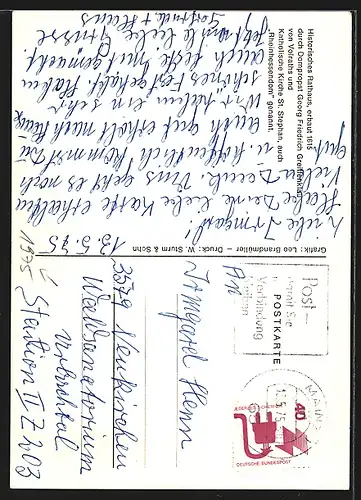 Historisches Rathaus, erbaut 1615
durch Dompropst Georg Friedrich Greiffenklau
von Vollraths und
Katholische Kirche St. Stephan, auch
„Rheinhessendom" genannt.
13.5.75
Liebe Irmgard!
Habe Deine liebe Karte erhalten
Vielen Dank. Uns geht es noch
gut
u. hoffentlich kommst Du
auch gut erholt nach Haus
Wir haben ein sehr
schönes Fest gehabt. Haben
auch Feste mit gemacht
Jetzt viele liebe Grüsse
Grafik: Leo Brandmüller – Druck: W. Sturm & Sohn
1975
Post-
POSTKARTE
Verbindung
MAINZ
15.5.75
40
JEDERZEIT SICHERHEIT
DEUTSCHE BUNDESPOST
An
Irmgard Henn
3579 Neukirchen
Waldsanatorium
Urbachtal
Station II Z 203